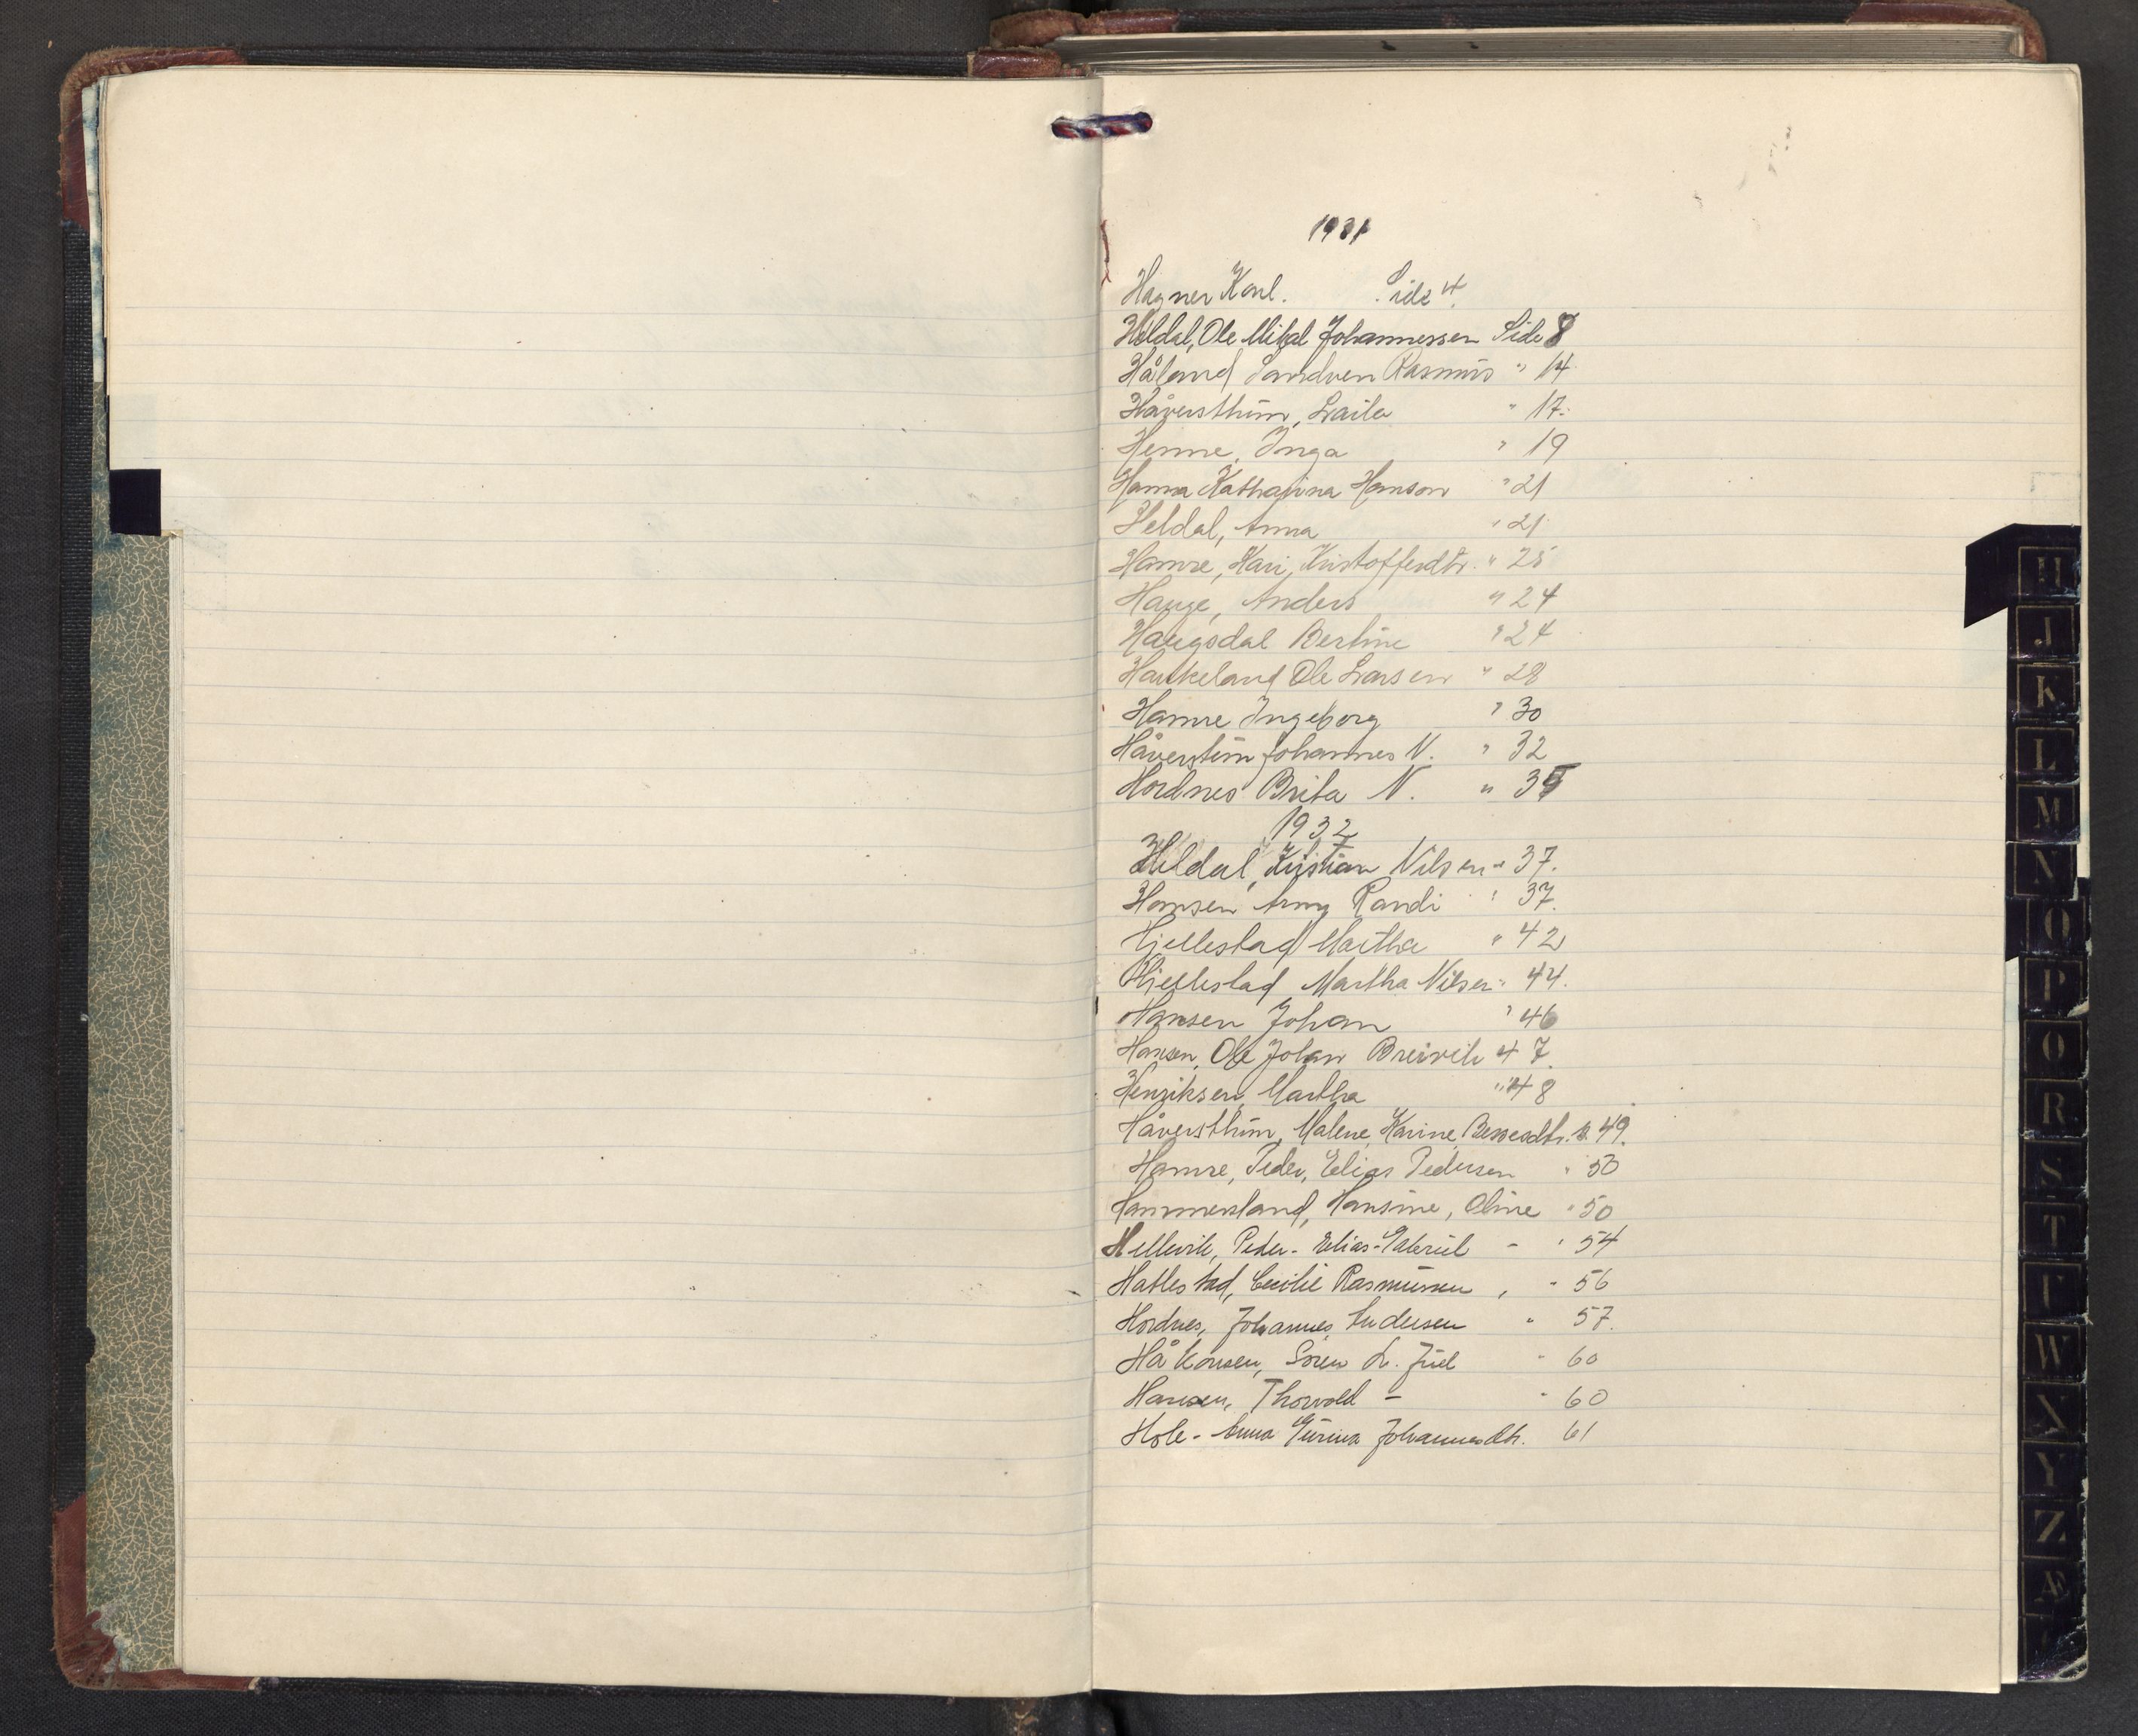 1931
Hagner Karl. Side 4.
Heldal, Ole Mikal Johannessen Side 8
Håland Sandven Rasmus " 14
Håversthun, Laila " 17.
Henne, Inga " 19
Hanna Katharina Hanson " 21
Heldal, Anna " 21
Hamre, Kari, Kristoffersdtr. " 25
Hauge, Anders " 24
Haugsdal Bertine " 24
Haukeland Ole Larsen " 28
Hamre Ingeborg " 30
Håverstun Johannes N. " 32
Hordnes Brita N. " 35
1932
Heldal, Kristian Nilsen " 37.
Hansen Anny Randi " 37.
Hjellestad Martha " 42
Hjellestad Martha Nilsen " 44.
Hansen Johan " 46
Hansen, Ole Johan Breivik 47.
Henriksen, Martha " 48
Håversthun, Malene, Karine, 49.
Hamre, Peder, Elias Pedersen " 50
Hammersland, Hansine, Oline " 50
Hellevik, Peder - Elias - Gabriel - " 54
Hatlestad, Cecilie Rasmussen, " 56
Hordnes, Johannes, Andersen " 57.
Håkonsen, Sören L. Juel " 60
Hansen, Thorvald - " 60
Hole - Anna Gurina Johannesdtr. 61
H
J
K
L
M
N
O
P
Q
R
S
T
W
X
Y
Z
Æ